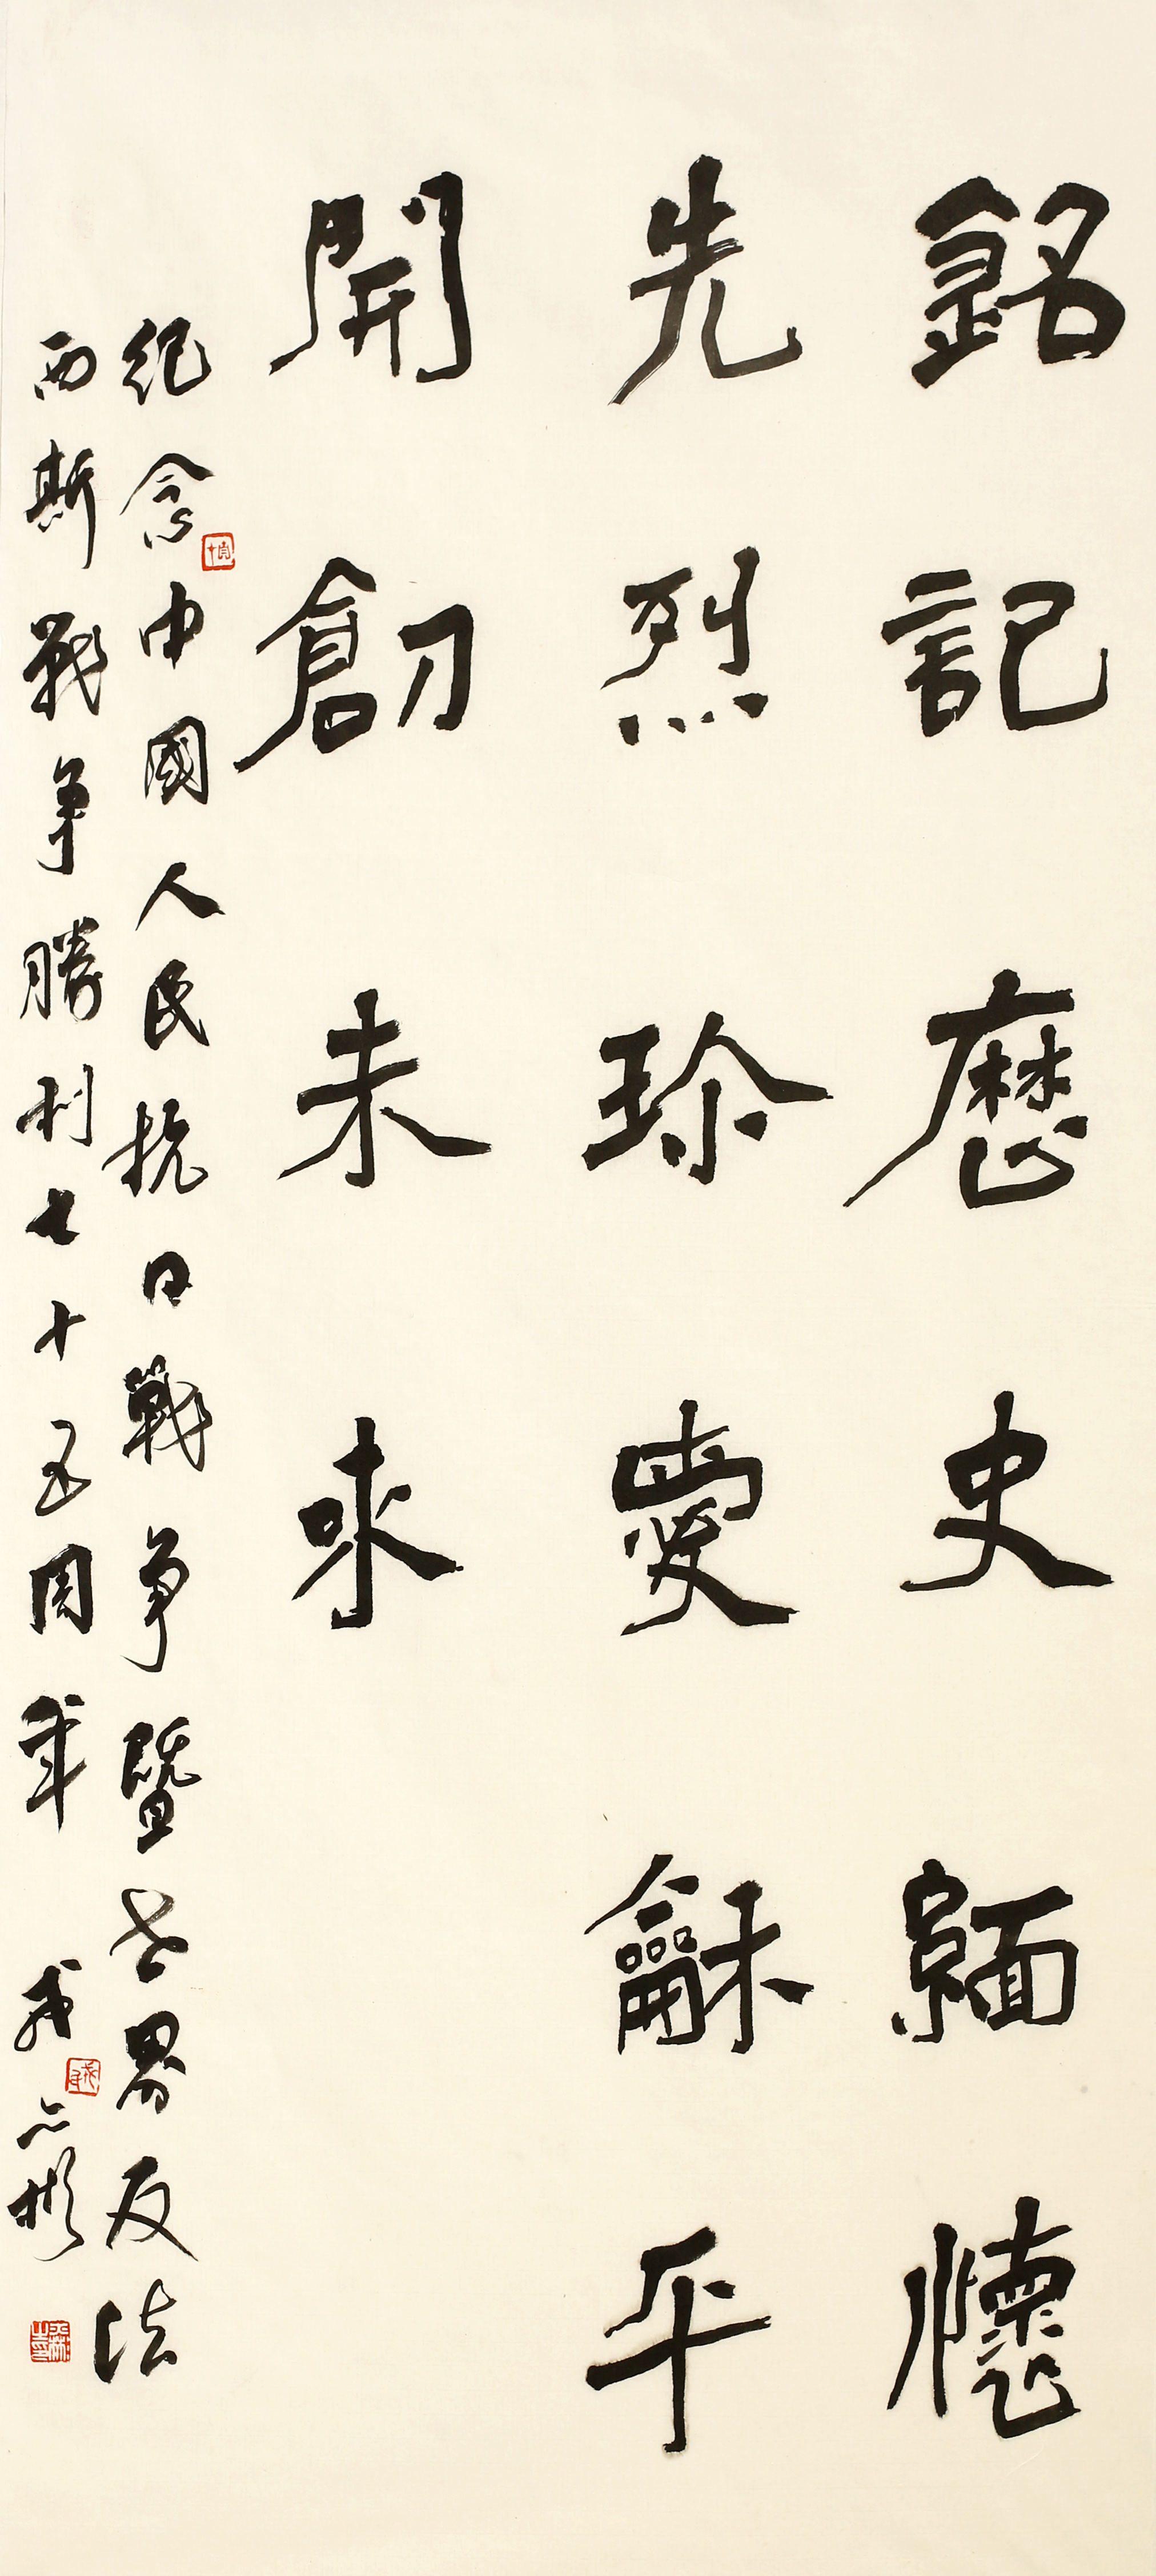 銘記歷史緬懷
先烈珍愛龢平
開創未來
紀念中國人民抗日戰爭暨世界反法
西斯戰爭勝利七十五周年